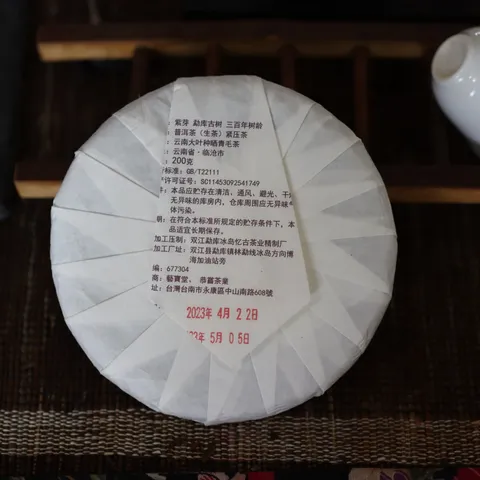 : 紫芽 勐库古树 三百年树龄
: 普洱茶（生茶）紧压茶
: 云南大叶种晒青毛茶
: 云南省·临沧市
: 200克
标准: GB/T22111
许可证号: SC11453092541749
: 本品应贮存在清洁、通风、避光、干
无异味的库房内，仓库周围应无异味
体污染。
明: 在符合本标准所规定的贮存条件下，本
品适宜长期保存。
加工压制: 双江勐库冰岛忆古茶业精制厂
加工厂址: 双江县勐库镇林勐线冰岛方向博
海加油站旁
编: 677304
商: 藝寶堂、 恭囍茶業
址: 台灣台南市永康區中山南路608號
2023年 4月 2 2日
23年 5月 0 5日